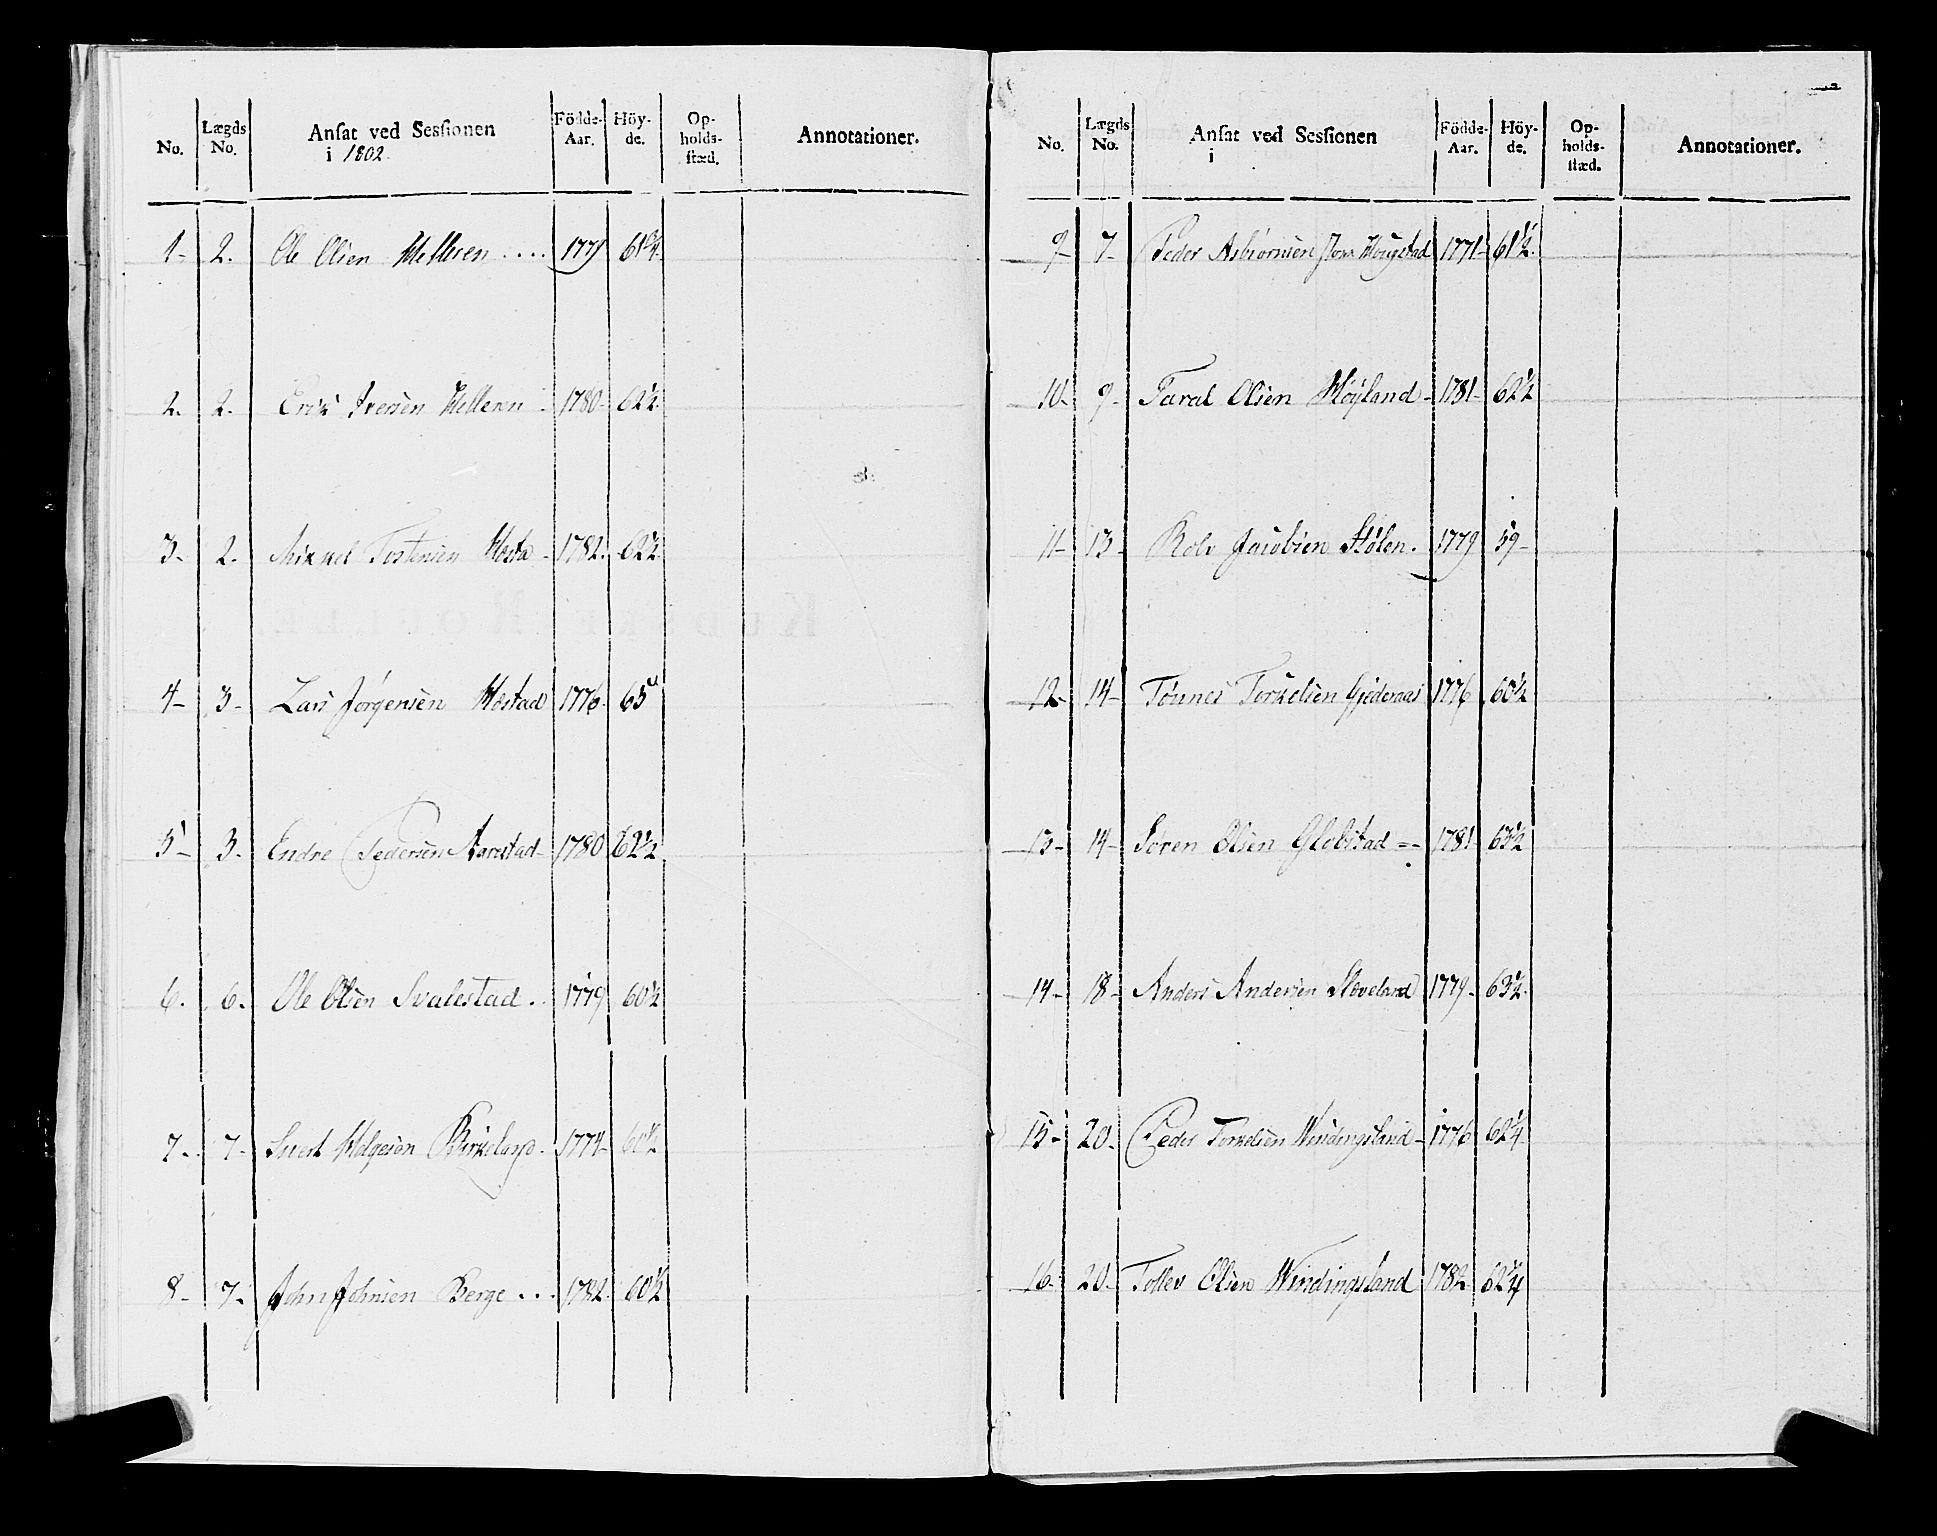 No. Lægds No. Ansat ved Sessionen i 1802. Födde-Aar. Höy-de. Op-holds-stæd. Annotationer.
1- 2. Ole Olsen Helleren .... 1771 61 3/4
2. 2. Erik Iversen Helleren 1780- 62 1/2
3- 2. Mikkel Tostensen 1782. 62 1/2
4- 3- Lars Jörgensen Hæstad 1776- 65
5- 3- Endre Pedersen Aarrestad- 1780 62 1/2
6. 6. Ole Olsen Svalestad .. 1779 60 1/2
7- 7- Sivert Helgesen 1774- 60 1/2
8- 7- John Johnsen Berge ... 1782. 60 1/2
No. Lægds No. Ansat ved Sessionen i Födde-Aar. Höy-de. Op-holds-stæd. Annotationer.
9- 7- Peder Asbiørnsen 1771- 61 1/2
10- 9- Taral Olsen Høyland- 1781- 62 1/2
11- 13- Rolv Jacobsen Stølen. 1779 59-
12- 14- Tönnes Torkelsen 1776 60 1/2
13- 14- Sören Olsen Globstad =- 1781- 63 1/2
14- 18- Anders Andersen Sleveland 1779- 63 1/2
15- 20- Peder Torkelsen Windingsland- 1776 62 1/4
16- 20- Tollev Olsen Windingsland 1782 62 1/4